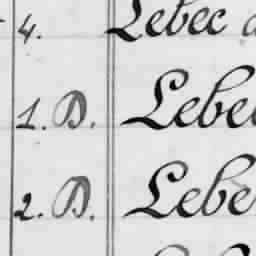 4. Lebec
1. D. Lebe
2. D. Lebe